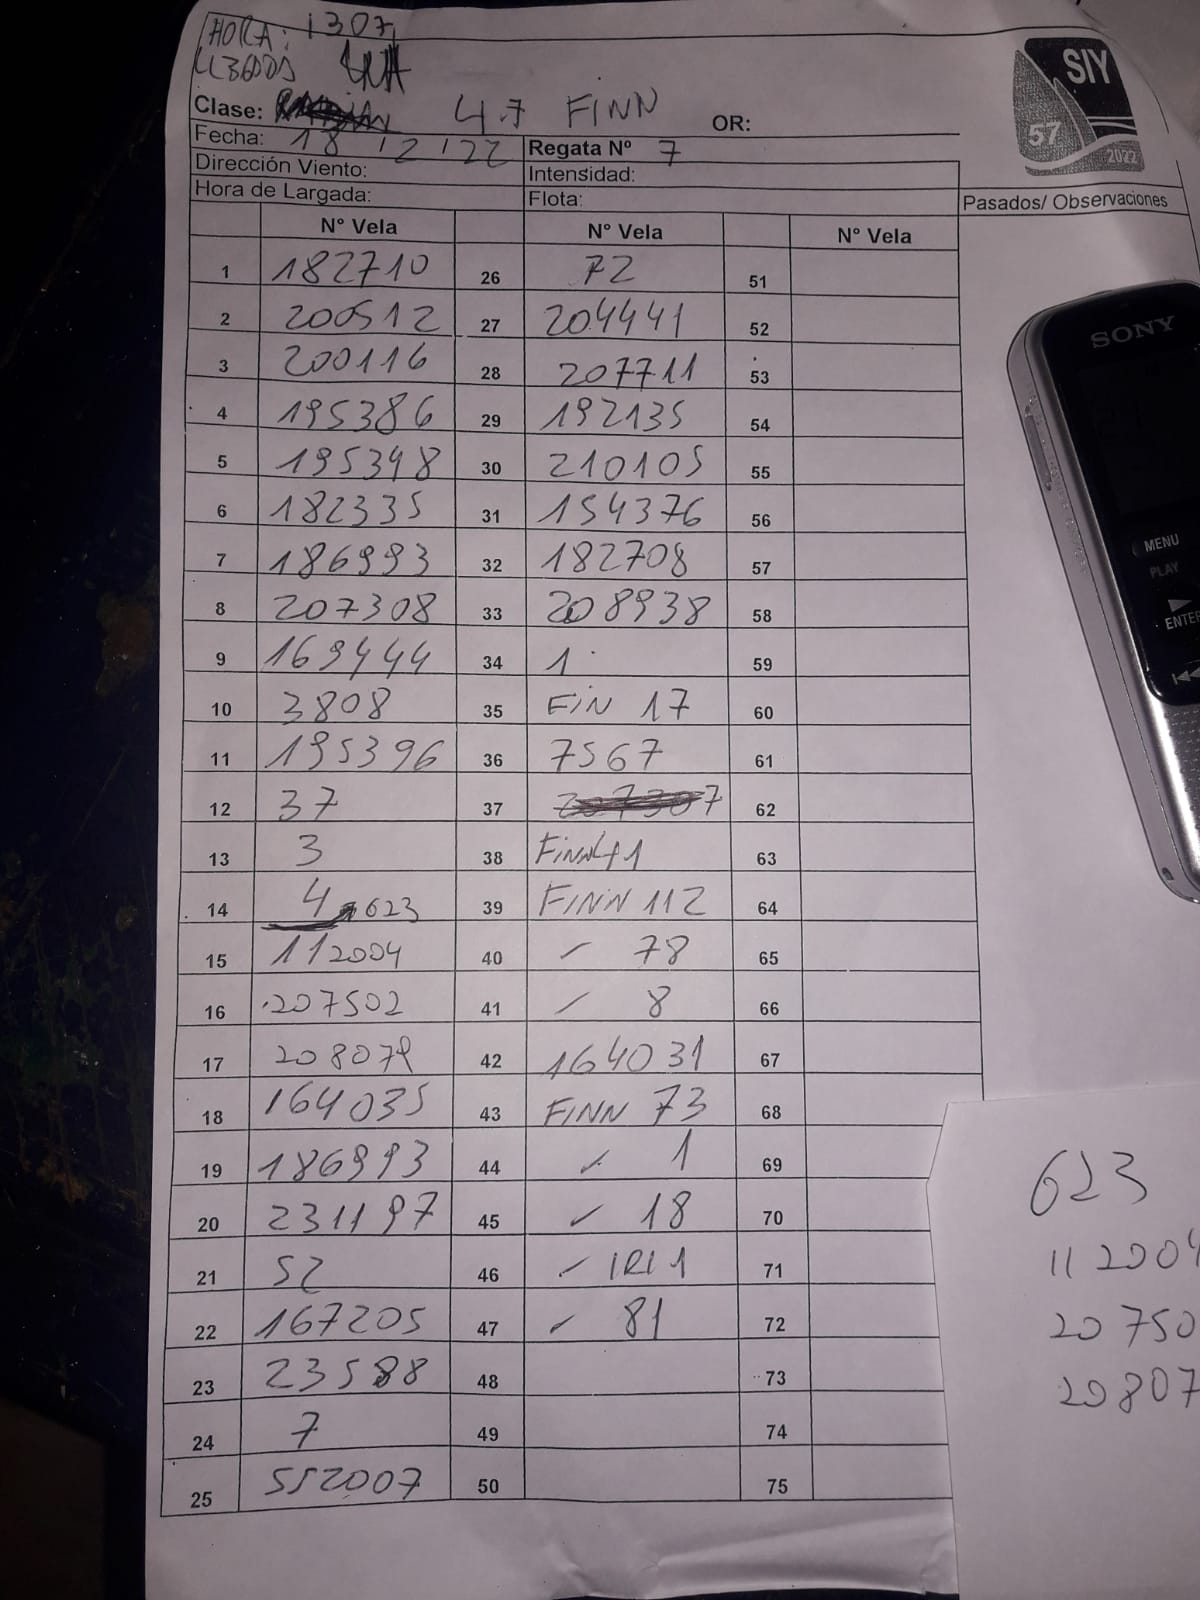 HORA: 1307
SIY
57
2022
Clase: 4.7 FINN OR:
Fecha: 18 12 '22 Regata N° 7
Dirección Viento: Intensidad:
Hora de Largada: Flota: Pasados/ Observaciones
N° Vela N° Vela N° Vela
1 182710 26 72 51
2 200512 27 204441 52
3 200116 28 207711 53
4 195386 29 192135 54
5 195398 30 210105 55
6 182335 31 154376 56
7 186993 32 182708 57
8 207308 33 208938 58
9 169444 34 1 59
10 3808 35 FIN 17 60
11 195396 36 7567 61
12 37 37 207307 62
13 3 38 FINN 41 63
14 4 623 39 FINN 112 64
15 112004 40 ✓ 78 65
16 207502 41 ✓ 8 66
17 208079 42 164031 67
18 164035 43 FINN 73 68
19 186993 44 ✓ 1 69
20 231197 45 ✓ 18 70
21 52 46 ✓ IRI 1 71
22 167205 47 ✓ 81 72
23 23588 48 73
24 7 49 74
25 552007 50 75
SONY
MENU
PLAY
ENTER
623
112004
20750
20807